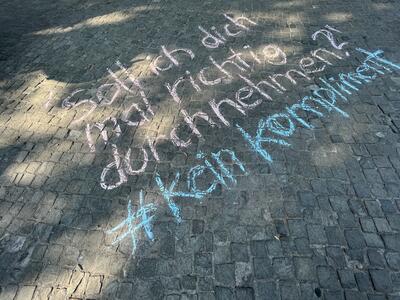 "Soll ich dich
mal richtig
durchnehmen?"
#Kein kompliment